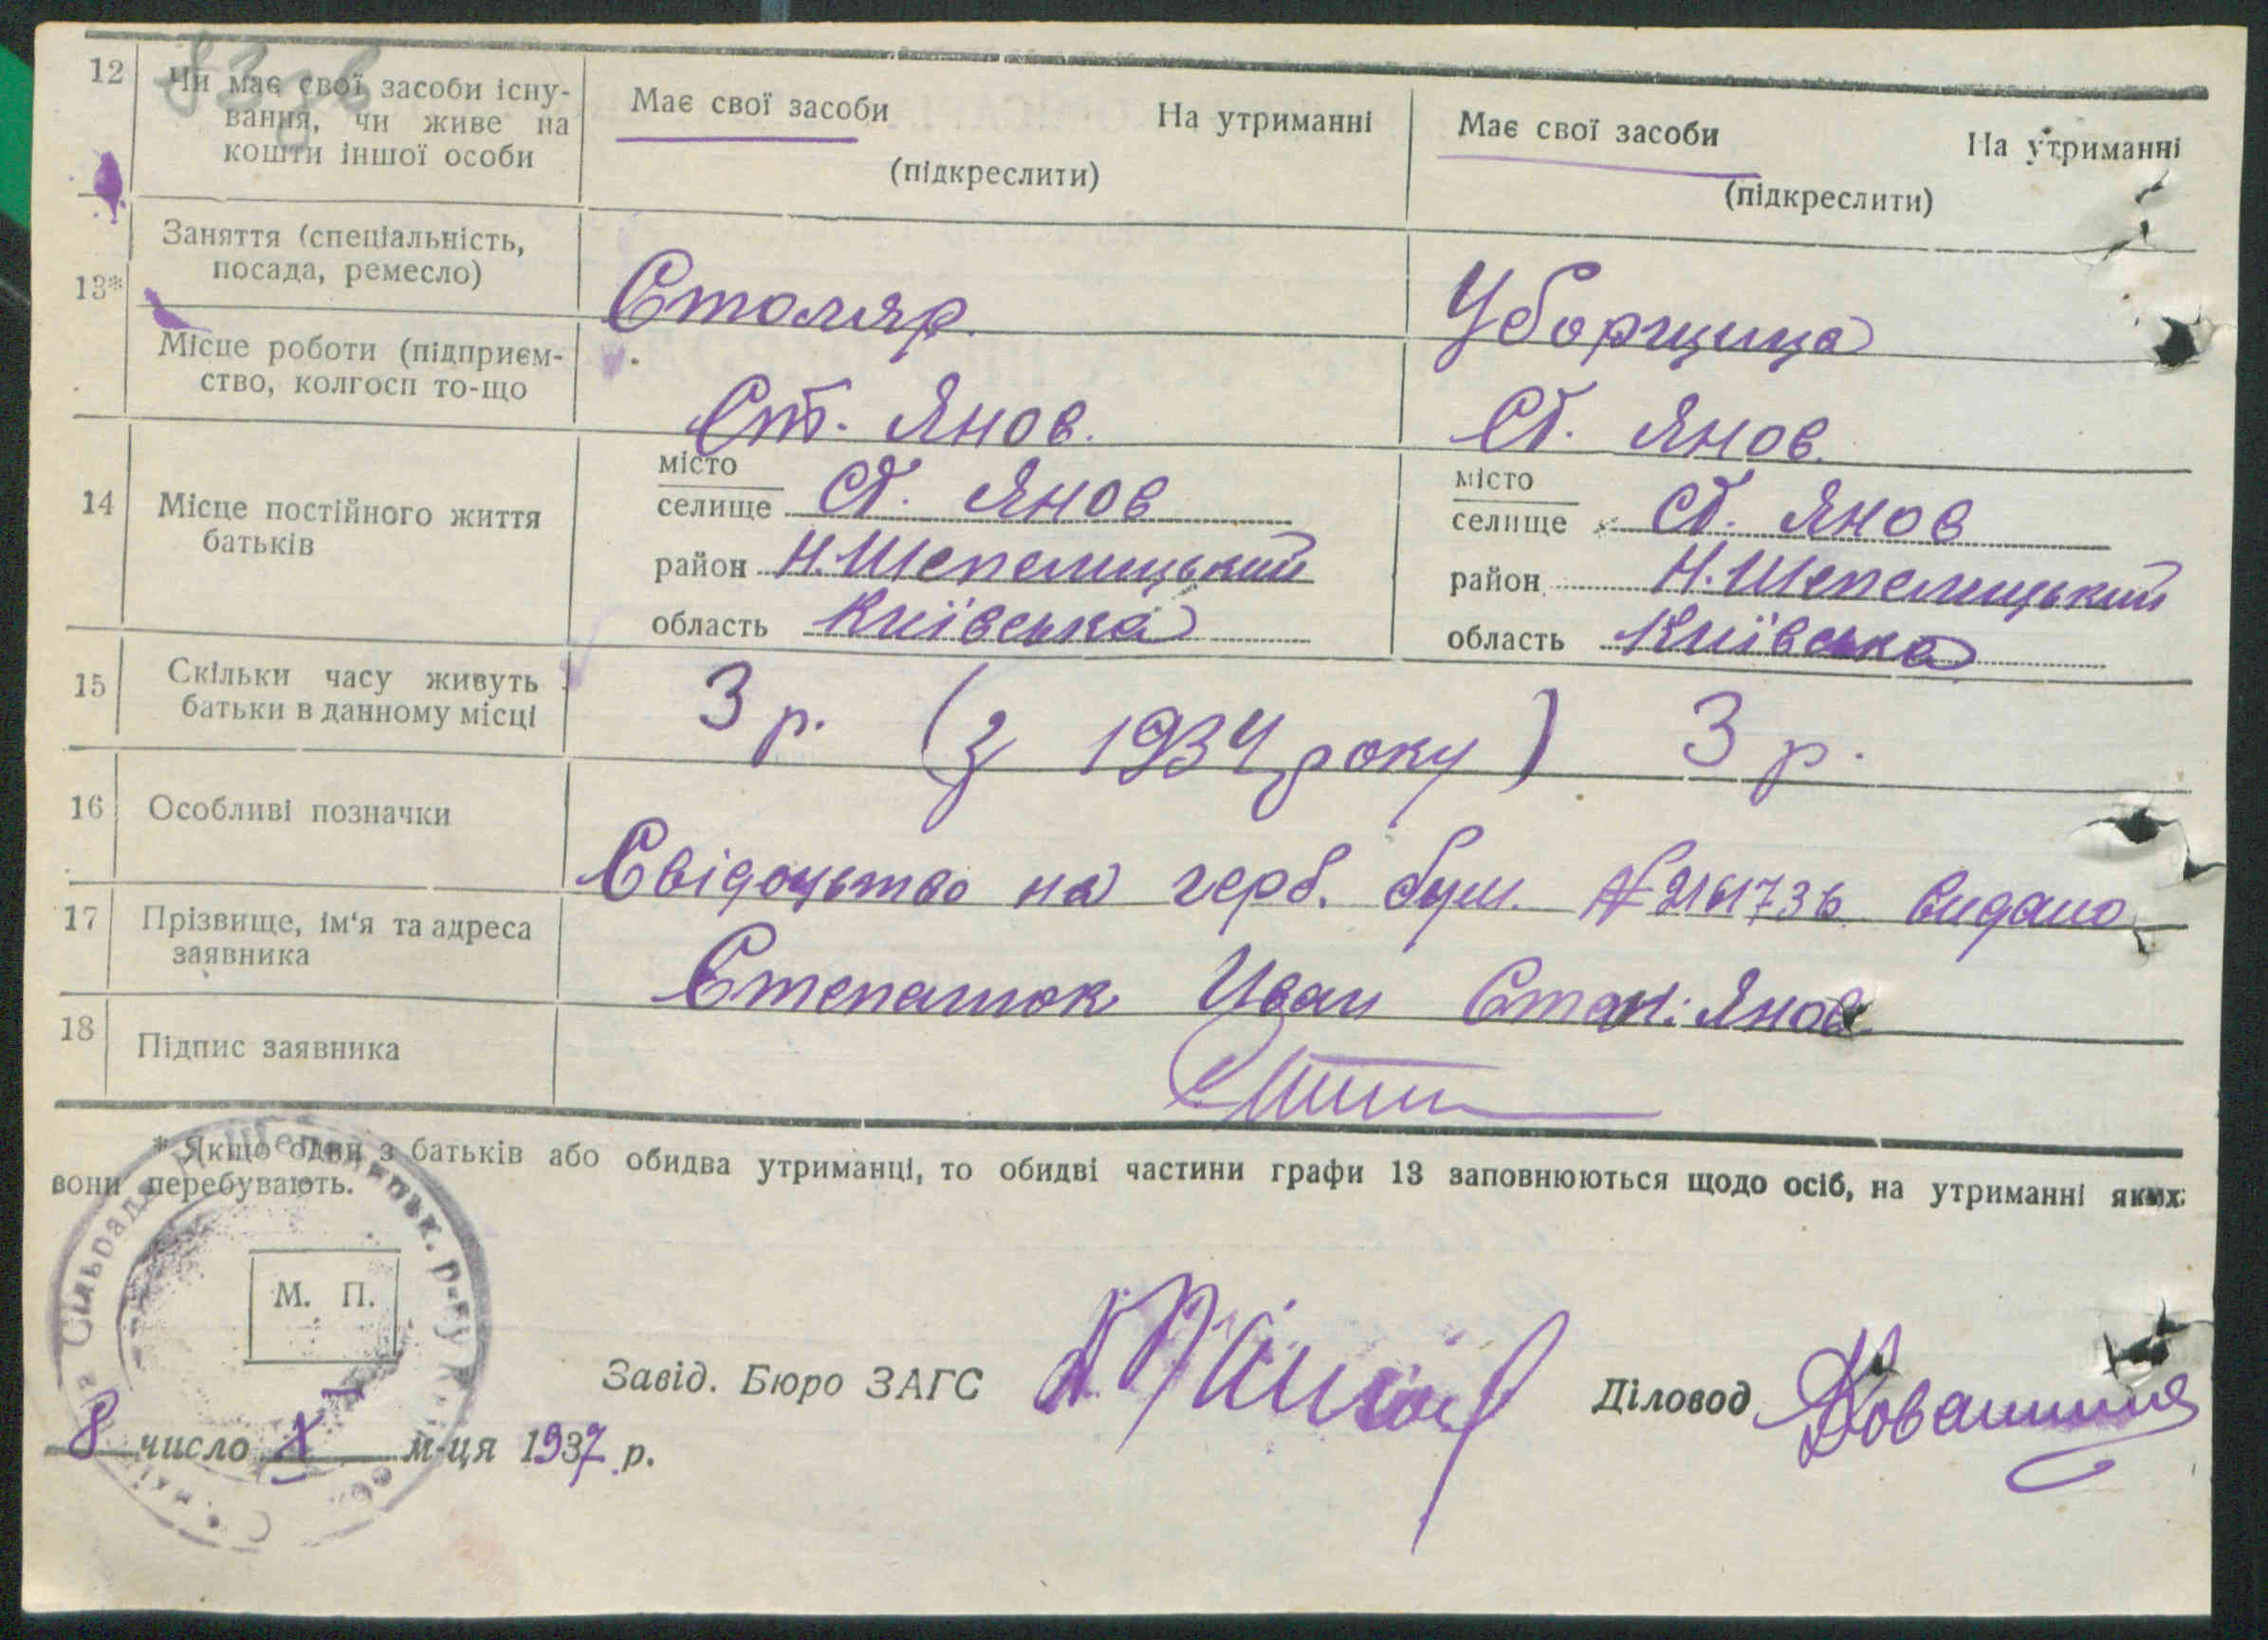 12 Чи має свої засоби існу-
вання, чи живе на
кошти іншої особи
Має свої засоби На утриманні
(підкреслити)
Має свої засоби На утриманні
(підкреслити)
13* Заняття (спеціальність,
посада, ремесло)
Столяр.
Уборщица
Місце роботи (підприєм-
ство, колгосп то-що
Ст. Янов.
Ст. Янов.
14 Місце постійного життя
батьків
місто
селище Ст. Янов
район Н. Шепелицький
область Київська
місто
селище Ст. Янов
район Н. Шепелицький
область Київська
15 Скільки часу живуть
батьки в данному місці
3 р. (з 1934 року) 3 р.
16 Особливі позначки
Свідоцтво на герб. бум. № 2161736 видано
17 Прізвище, ім'я та адреса
заявника
Степанюк Иван Стан: Янов
18 Підпис заявника
* Якщо один з батьків або обидва утриманці, то обидві частини графи 13 заповнюються щодо осіб, на утриманні яких
вони перебувають.
Сільрада р-ну
М. П.
Завід. Бюро ЗАГС
Діловод
8 число X м-ця 1937 р.